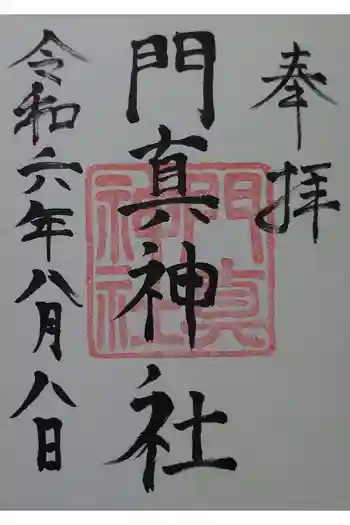 奉拝
門真神社
門真
神社
令和六年八月八日